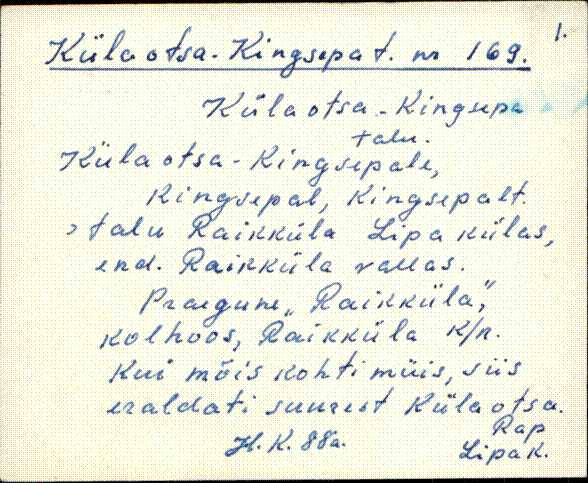 1.
Külaotsa-Kingsepa t. nr 169.
Külaotsa-Kingsepa
talu.
Külaotsa-Kingsepale,
Kingsepal, Kingsepalt.
talu Raikküla Lipa külas,
end. Raikküla vallas.
Praegune „Raikküla",
kolhoos, Raikküla k/n.
Kui mõis kohti müis, siis
eraldati suurest Külaotsa.
Rap
H. K. 88a.
Lipa k.